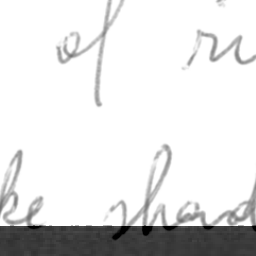 of ri
ke shad